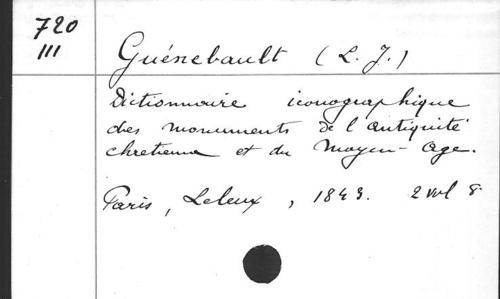 720
III
Guénebault (L. J.)
Dictionnaire iconographique
des monuments de l'antiquité
chretienne et du Moyen-age.
Paris, Leleux, 1843. 2 vol 8°